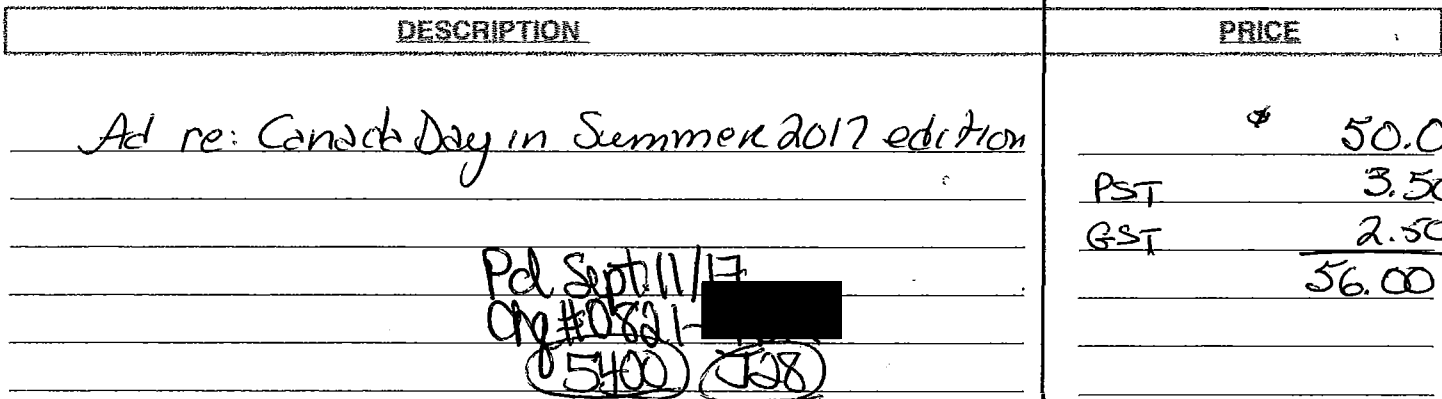 DESCRIPTION PRICE
Ad re: Canada Day in Summer 2017 edition $ 50.0
PST 3.50
GST 2.50
Pd Sept 11/17 56.00
Chq #0821-
5400 J28